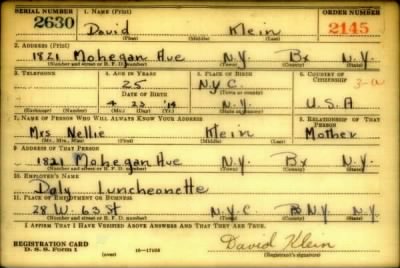 SERIAL NUMBER 1. NAME (Print) ORDER NUMBER
2630 David Klein 2145
(First) (Middle) (Last)
2. ADDRESS (Print)
1821 Mohegan Ave N.Y. Bx N.Y.
(Number and street or R. F. D. number) (Town) (County) (State)
3. TELEPHONE 4. AGE IN YEARS 5. PLACE OF BIRTH 6. COUNTRY OF CITIZENSHIP
25 N.Y.C. 3-a
DATE OF BIRTH (Town or county)
4 23 N.Y. U.S.A
(Exchange) (Number) (Mo.) (Day) (Yr.) (State or country)
7. NAME OF PERSON WHO WILL ALWAYS KNOW YOUR ADDRESS 8. RELATIONSHIP OF THAT PERSON
Mrs Nellie Klein Mother
(Mr., Mrs., Miss) (First) (Middle) (Last)
9. ADDRESS OF THAT PERSON
1821 Mohegan Ave N.Y. Bx N.Y.
(Number and street or R. F. D. number) (Town) (County) (State)
10. EMPLOYER'S NAME
Daly Luncheonette
11. PLACE OF EMPLOYMENT OR BUSINESS
28 W. 63 St N.Y.C N.Y
(Number and street or R. F. D. number) (Town) (County) (State)
I AFFIRM THAT I HAVE VERIFIED ABOVE ANSWERS AND THAT THEY ARE TRUE.
REGISTRATION CARD David Klein
D. S. S. Form 1 (over) (Registrant's signature)